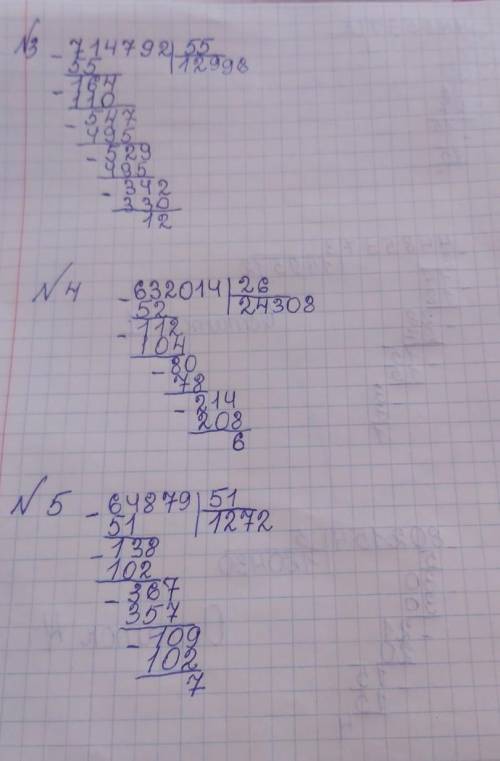 №3 - 714792 | 55
55 12998
- 164
110
- 547
495
- 529
495
- 342
330
12
№4 - 632014 | 26
52 24308
- 112
104
- 80
78
- 214
208
6
№5 - 64879 | 51
51 1272
- 138
102
- 367
357
- 109
102
7